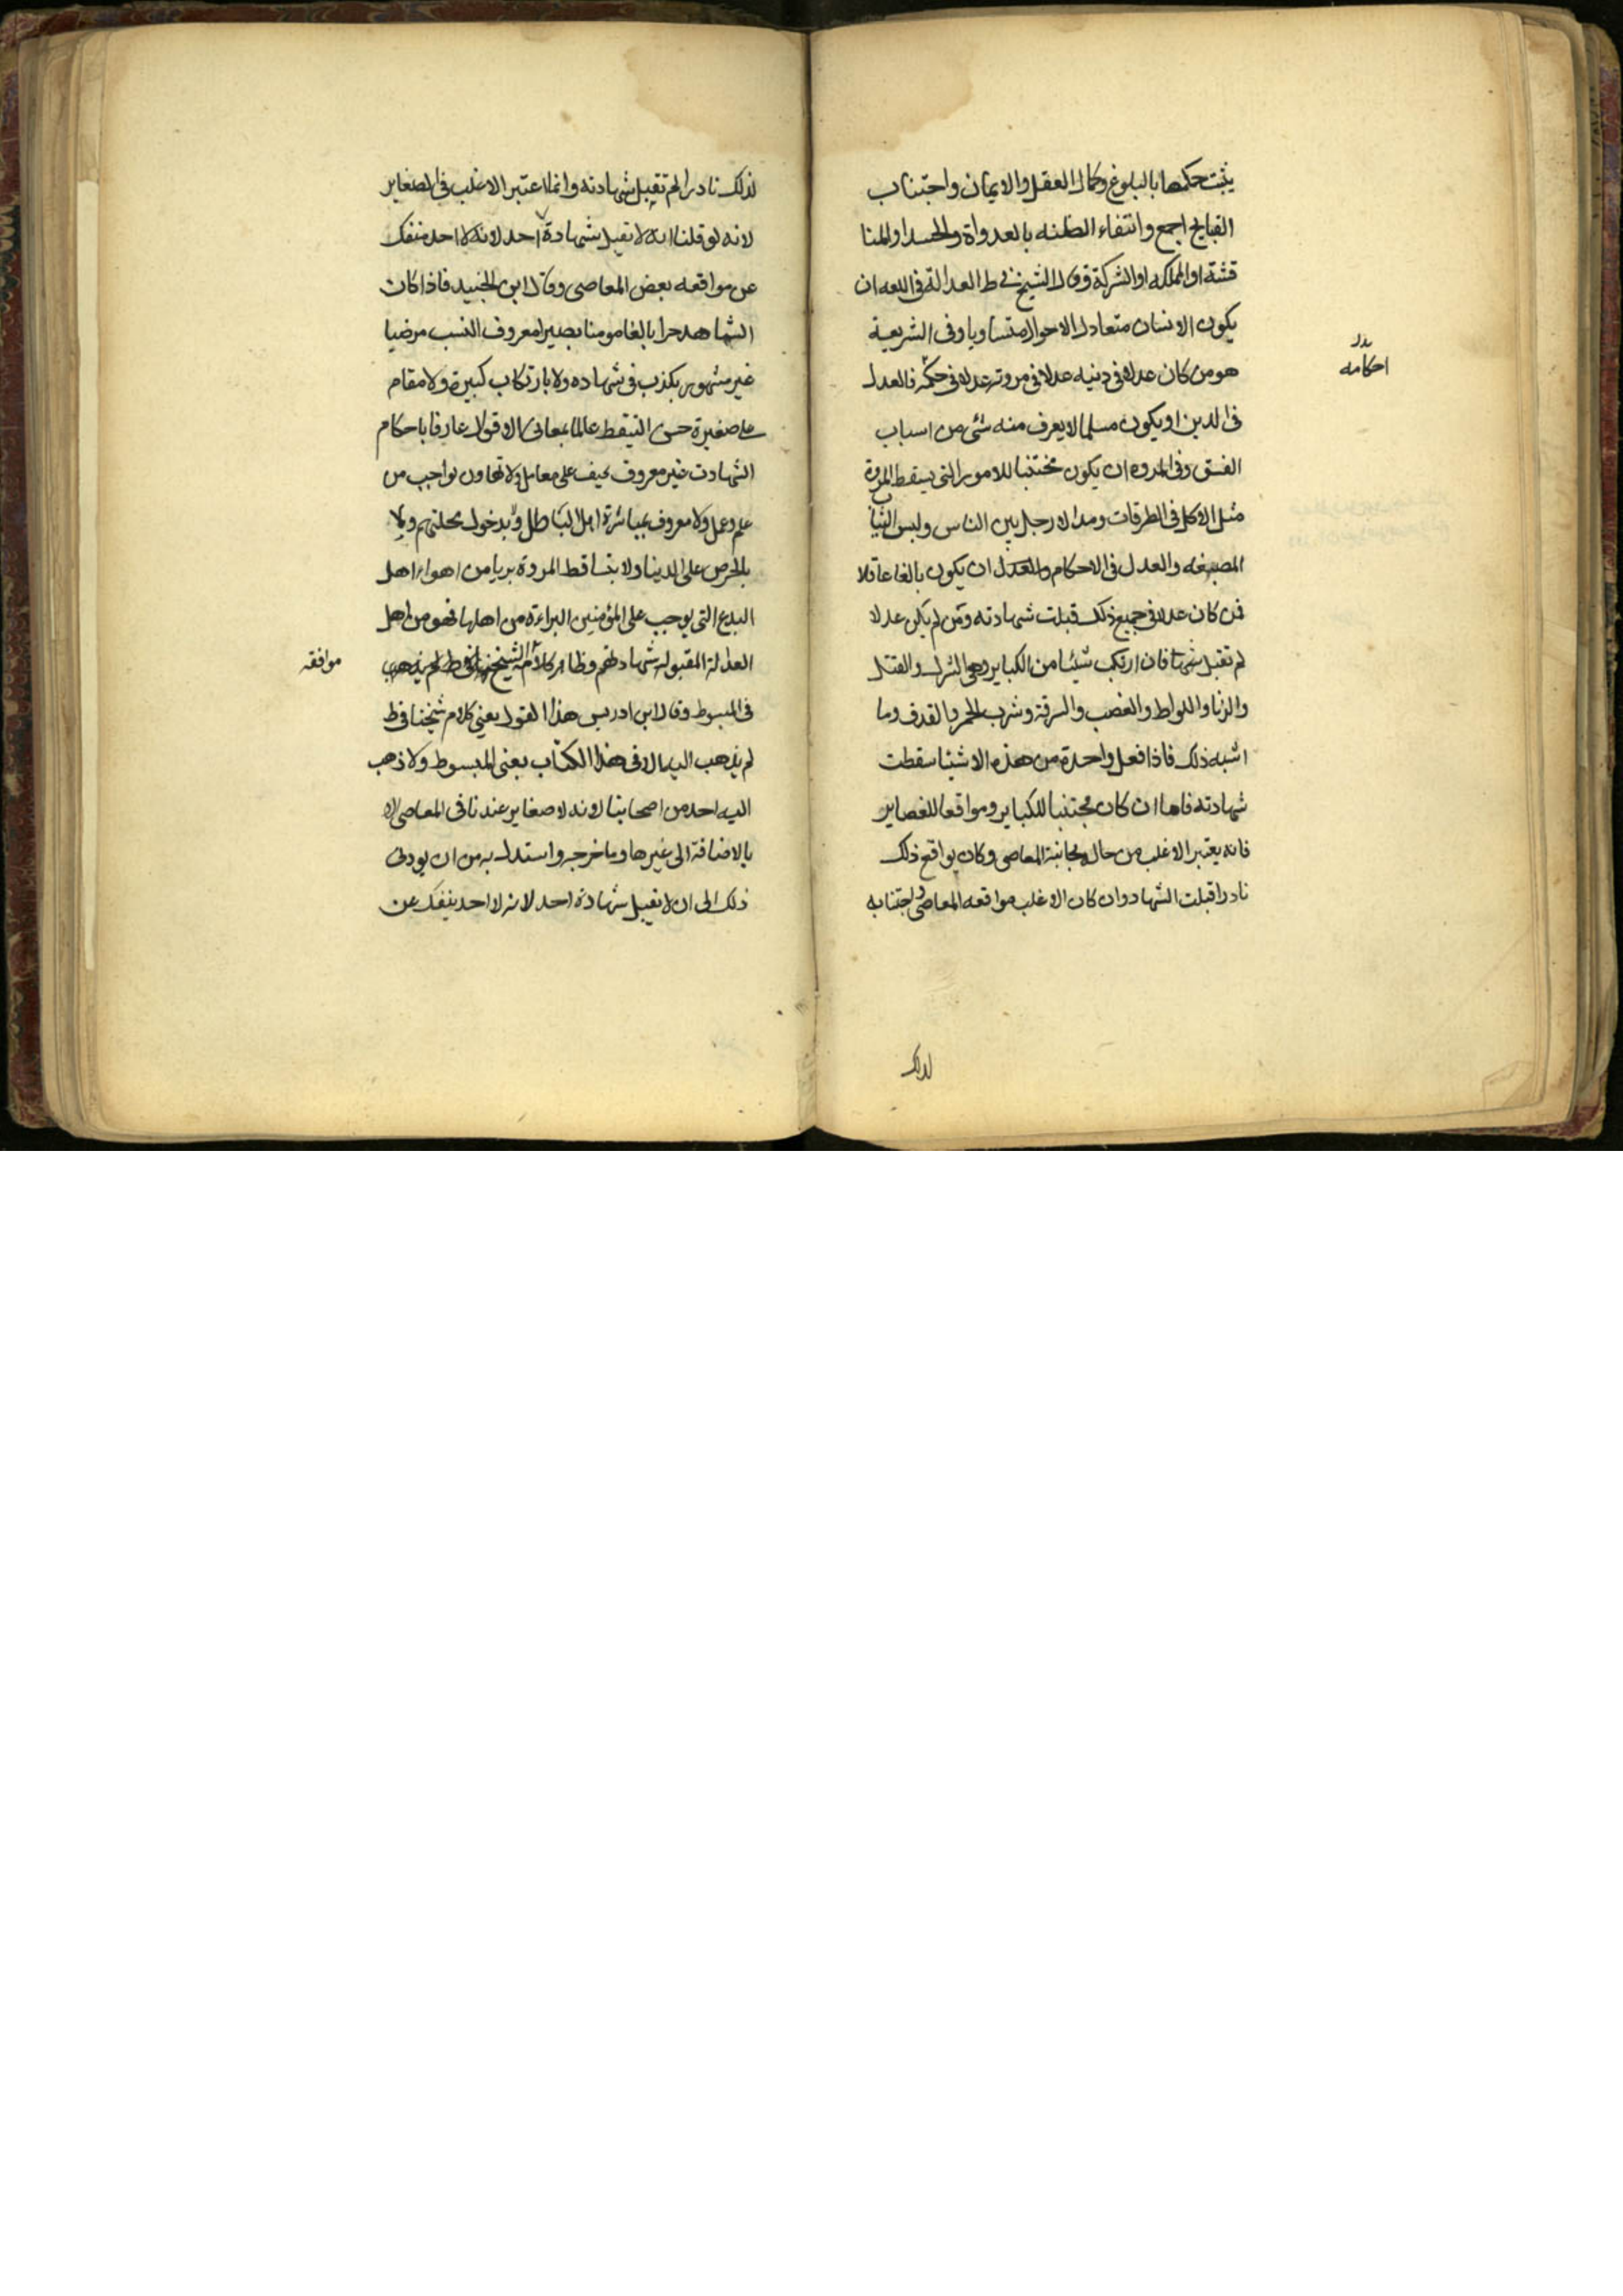 يثبت حكمها بالبلوغ وكمال العقل والايمان واجتناب
القبايح اجمع وانتفاء الظنه بالعدواة والحسد او المنا
قشة او المملكه او الشركة وقال الشيخ في ط العدالة في اللغه ان
يكون الانسان متعادل الاحوال متساويا وفى الشريعية
هو من كان عدلا فى دينه عدلا فى مروته عدلا فى حكمه فالعدل
فى الدين او يكون مسلما لا يعرف منه شئ من اسباب
الفسق وفى المروه ان يكون مجتنبا للامور التى يسقط المروة
مثل الاكل فى الطرقات ومد الارجل بين الناس ولبس الثياب
المصبغه والعدل فى الاحكام والعدل ان يكون بالغا عاقلا
فمن كان عدلا فى جميع ذلك قبلت شهادته ومن لم يكن عدلا
لم تقبل فان ارتكب شيئا من الكباير وهى الشرك والقتل
والزنا واللواط والغصب والسرقة وشرب الخمر والقذف وما
اشبه ذلك فاذا فعل واحدة من هذه الاشيا سقطت
شهادته فاما ان كان مجتنبا للكباير ومواقعا للغصاير
فانه يعتبر الاغلب من حاله مجانبة المعاصى وكان يواقع ذلك
نادرا قبلت الشهاد وان كان الاغلب مواقعه المعاصى واجتنابه
احكامه
لذلك
لذلك نادرا لم تقبل شهادته وانما اعتبر الاغلب فى الصغاير
لانه لو قلنا انه لا تقبل شهادة احد لانه لا احد منفك
عن مواقعه بعض المعاصى وقال ابن الجنيد فاذا كان
الشاهد حرا بالغا مومنا بصيرا معروف النسب مرضيا
غير مشهور بكذب فى شهاده ولا بارتكاب كبيرة ولا مقام
على صغيرة حسن التيقظ عالما بمعانى الاقوال عارفا باحكام
الشهادت غير معروف بحيف على معامل ولا تهاون بواجب من
علم وعمل ولا معروف بمباشرة اهل الباطل ولا بدخول محلتهم ولا
بالحرص على الدينا ولا بتساقط المروة بريا من اهواء اهل
البدع التى يوجب على المؤمنين البراءة من اهلها فهو من اهل
العدلة المقبولة شهادتهم وظاهر كلامه الشيخ
فى المبسوط وقال ابن ادريس هذا القول يعنى كلام شيخنا فى ط
لم يذهب اليه الا فى هذا الكتاب يعنى المبسوط ولا ذهب
اليه احد من اصحابنا لانه لا صغاير عندنا فى المعاصى الا
بالاضافة الى غيرها وما خرجه واستدل به من ان يودى
ذلك الى ان لا يقبل شهادة احد لانه لا احد ينفك عن
موافقه